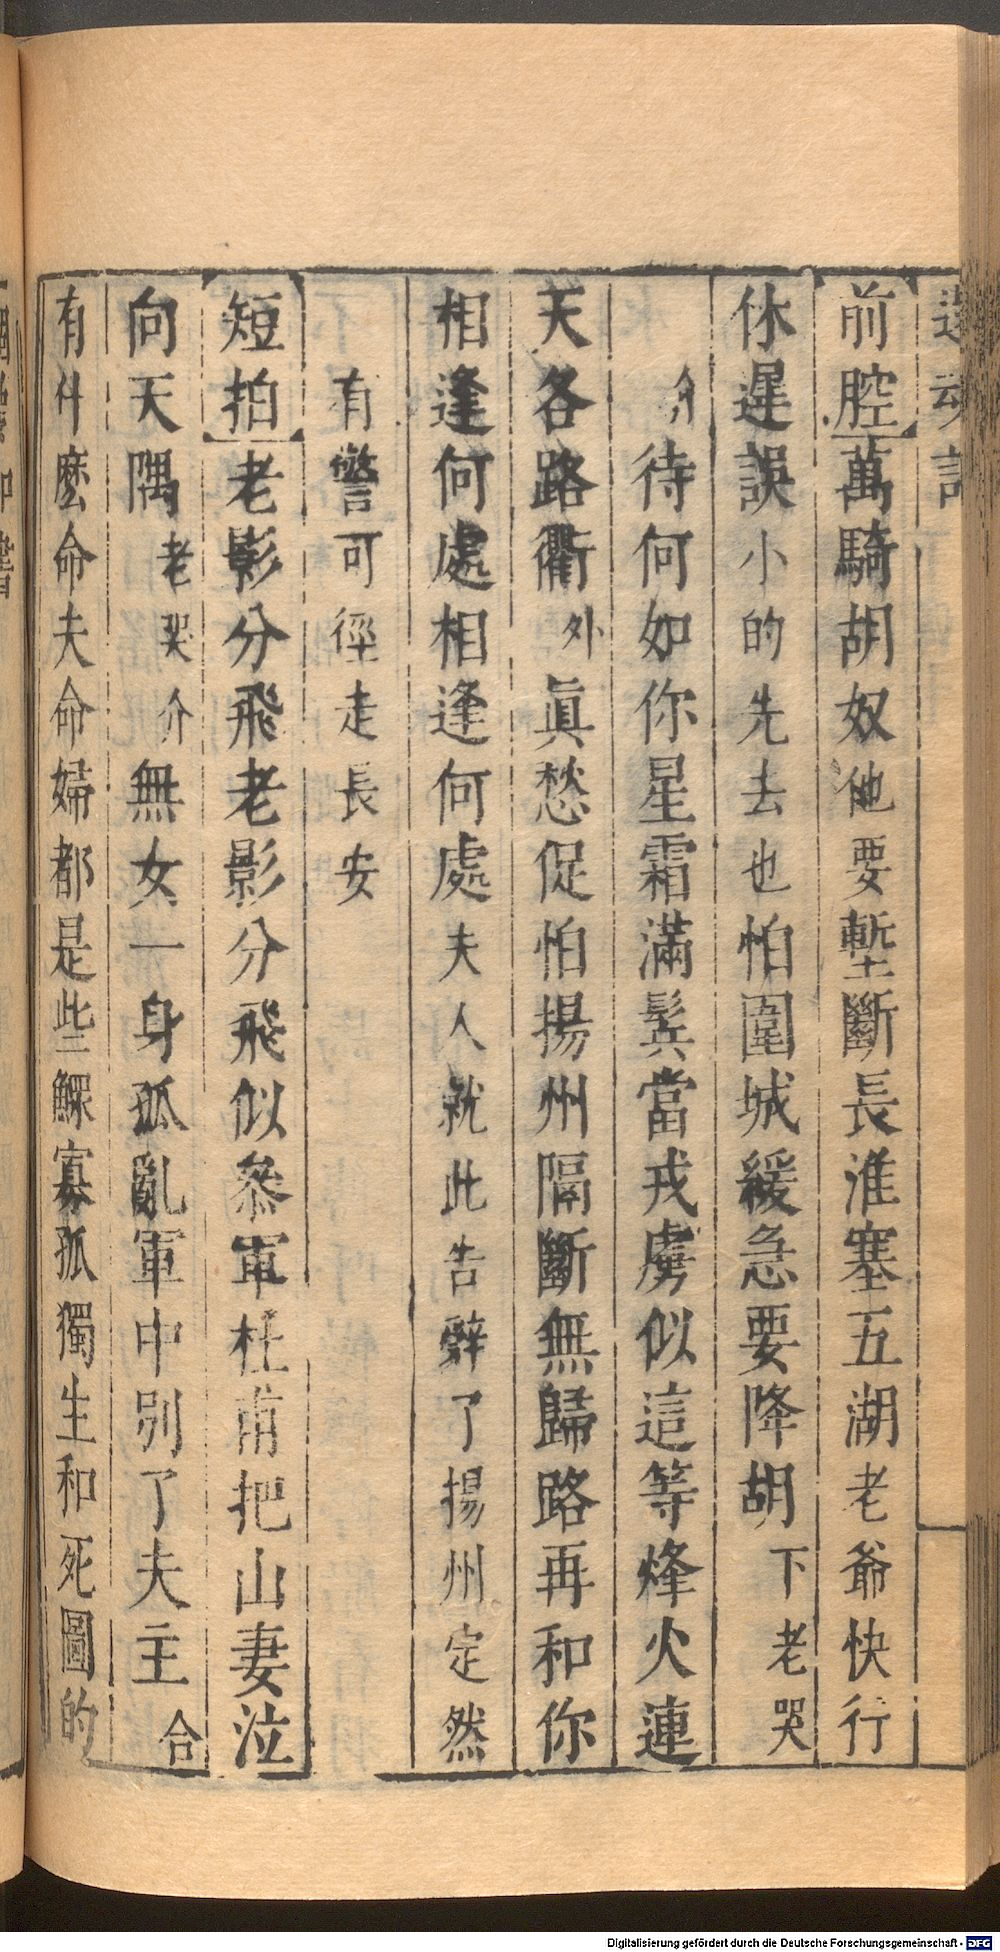 還魂記
前腔萬騎胡奴他要塹斷長淮塞五湖老爺快行
休遲誤小的先去也怕圍城緩急要降胡下老哭
介待何如你星霜滿鬢當戎虜似這等烽火連
天各路衢外眞愁促怕揚州隔斷無歸路再和你
相逢何處相逢何處夫人就此告辭了揚州定然
有警可徑走長安
短拍老影分飛老影分飛似參軍杜甫把山妻泣
向天隅老哭介無女一身孤亂軍中別了夫主合
有什麽命夫命婦都是些鰥寡孤獨生和死圖的
Digitalisierung gefördert durch die Deutsche Forschungsgemeinschaft - DFG